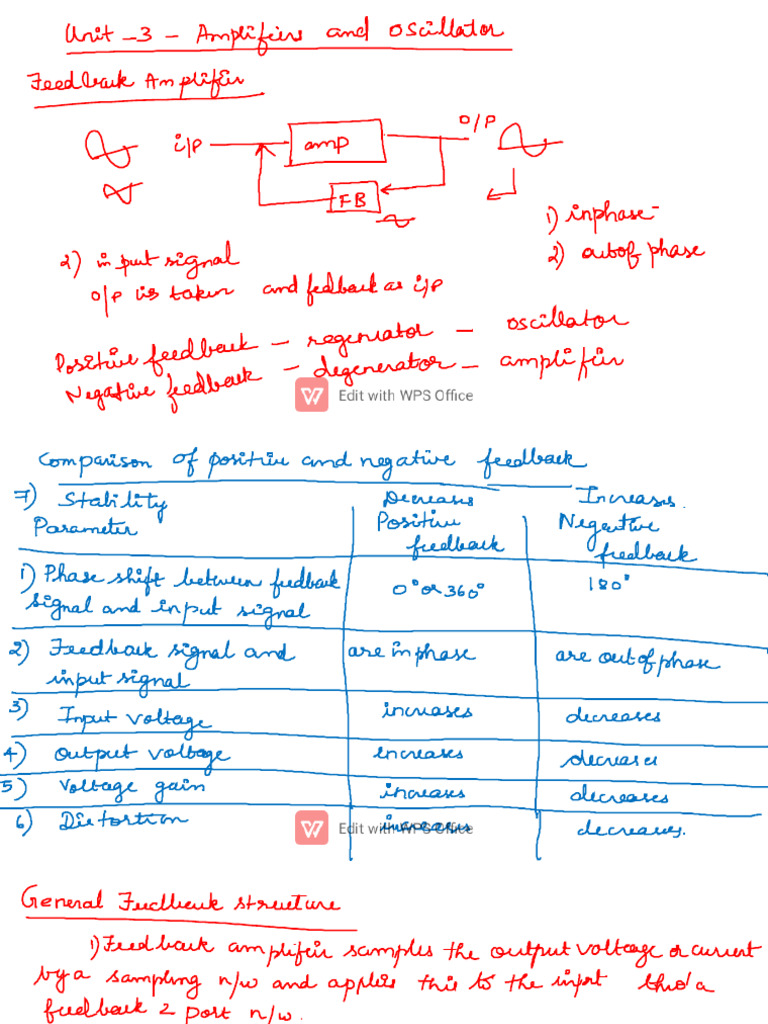 Unit -3 - Amplifiers and Oscillator
Feedback Amplifier
i/P amp O/P
FB
1) inphase-
2) outof phase
2) input signal
O/P is taken and fedback as i/p
Positive feedback - regenrator - oscillator
Negative feedback - degenerator - amplifier
Edit with WPS Office
Comparison of positive and negative feedback
7) Stability Decreases Increases.
Parameter Positive feedback Negative feedback
1) Phase shift between feedback 0° or 360° 180°
signal and input signal
2) Feedback signal and are in phase are out of phase
input signal
3) Input voltage increases decreases
4) Output voltage increases decreases
5) Voltage gain increases decreases
6) Distortion increases decreases.
Edit with WPS Office
General Feedback structure
1) Feedback amplifier samples the output voltage or current
by a sampling n/w and applies this to the input thro' a
feedback 2 port n/w.